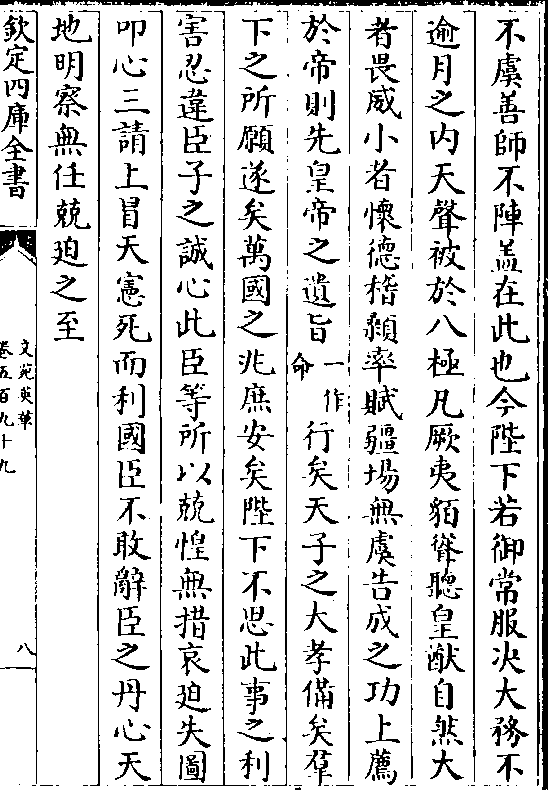 不虞善師不陣盖在此也今陛下若御常服决大務不
逾月之内天聲被於八極凡厥夷貊聳聽皇猷自然大
者畏威小者懷德楷顙率賦疆場無虞告成之功上薦
於帝則先皇帝之遺旨一作命行矣天子之大孝備矣羣
下之所願遂矣萬國之兆庶安矣陛下不思此事之利
害忍違臣子之誠心此臣等所以兢惶無措哀廹失圖
叩心三請上冒天憲死而利國臣不敢辭臣之丹心天
地明察無任兢廹之至
欽定四庫全書
文苑英華
卷五百九十九
八